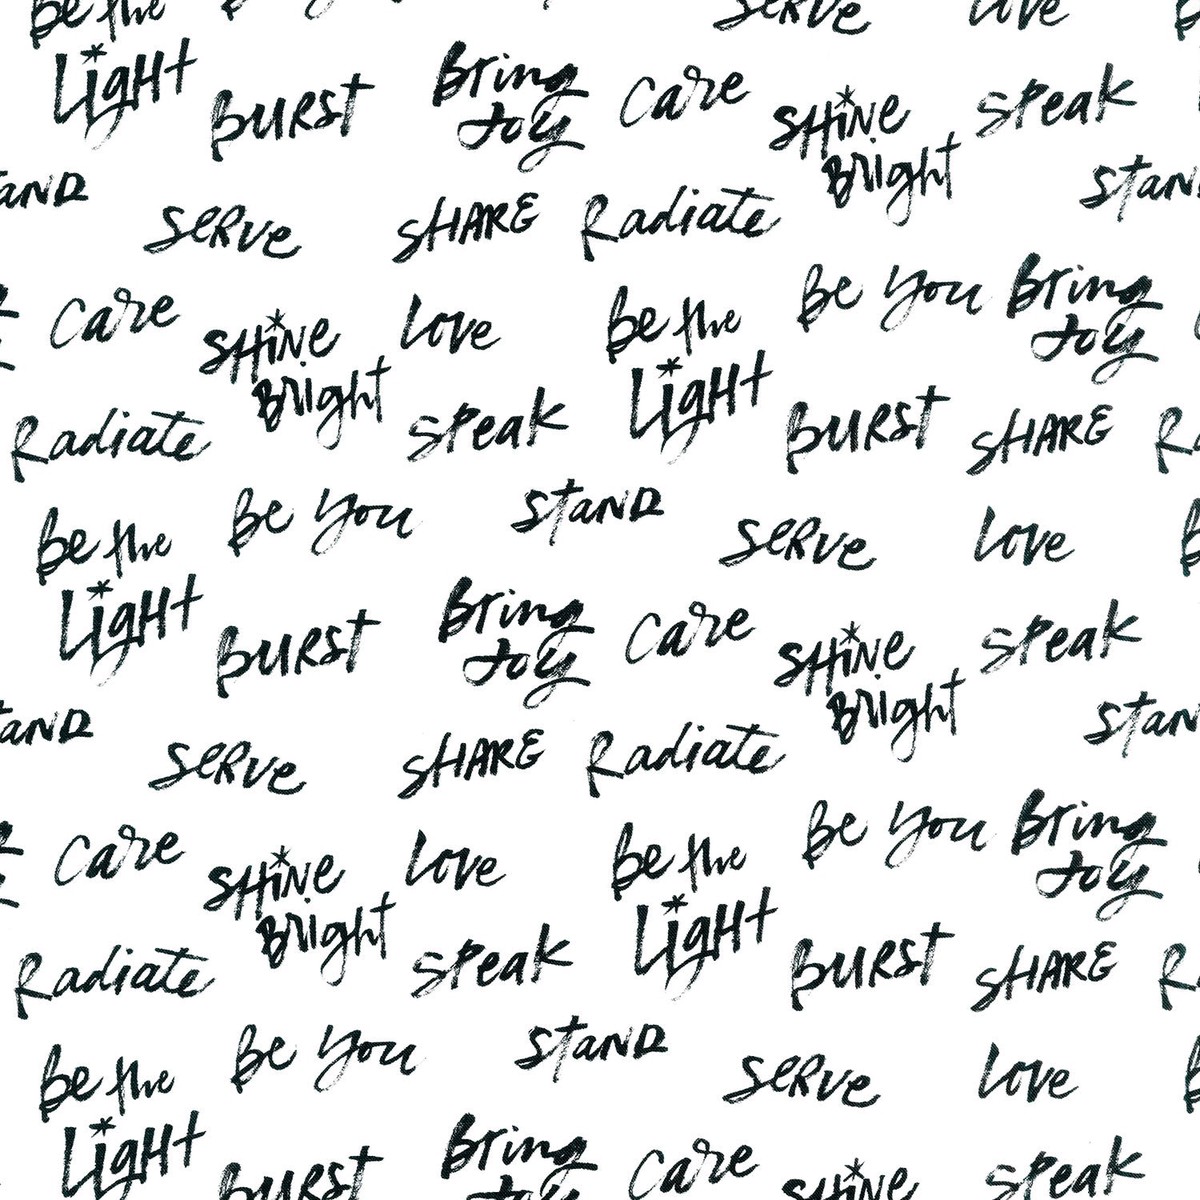 Be the
SERVE
Love
LigHt
BURST
Bring
Joy
Care
SHiNe
BRIght
Speak
STAND
SERVE
SHARE
Radiate
STAN
Care
SHiNe
BRIght
Love
Be the
LigHt
Be You
Bring
Joy
Radiate
Speak
BURST
SHARE
Be the
LigHt
Be You
STAND
SERVE
Love
BURST
Bring
Joy
Care
SHiNe
BRIght
Speak
AND
SERVE
SHARE
Radiate
STAN
Care
SHiNe
BRIght
Love
Be the
LigHt
Be You
Bring
Joy
Radiate
Speak
BURST
SHARE
Be the
LigHt
Be You
STAND
SERVE
Love
BURST
Bring
Care
SHiNe
Speak